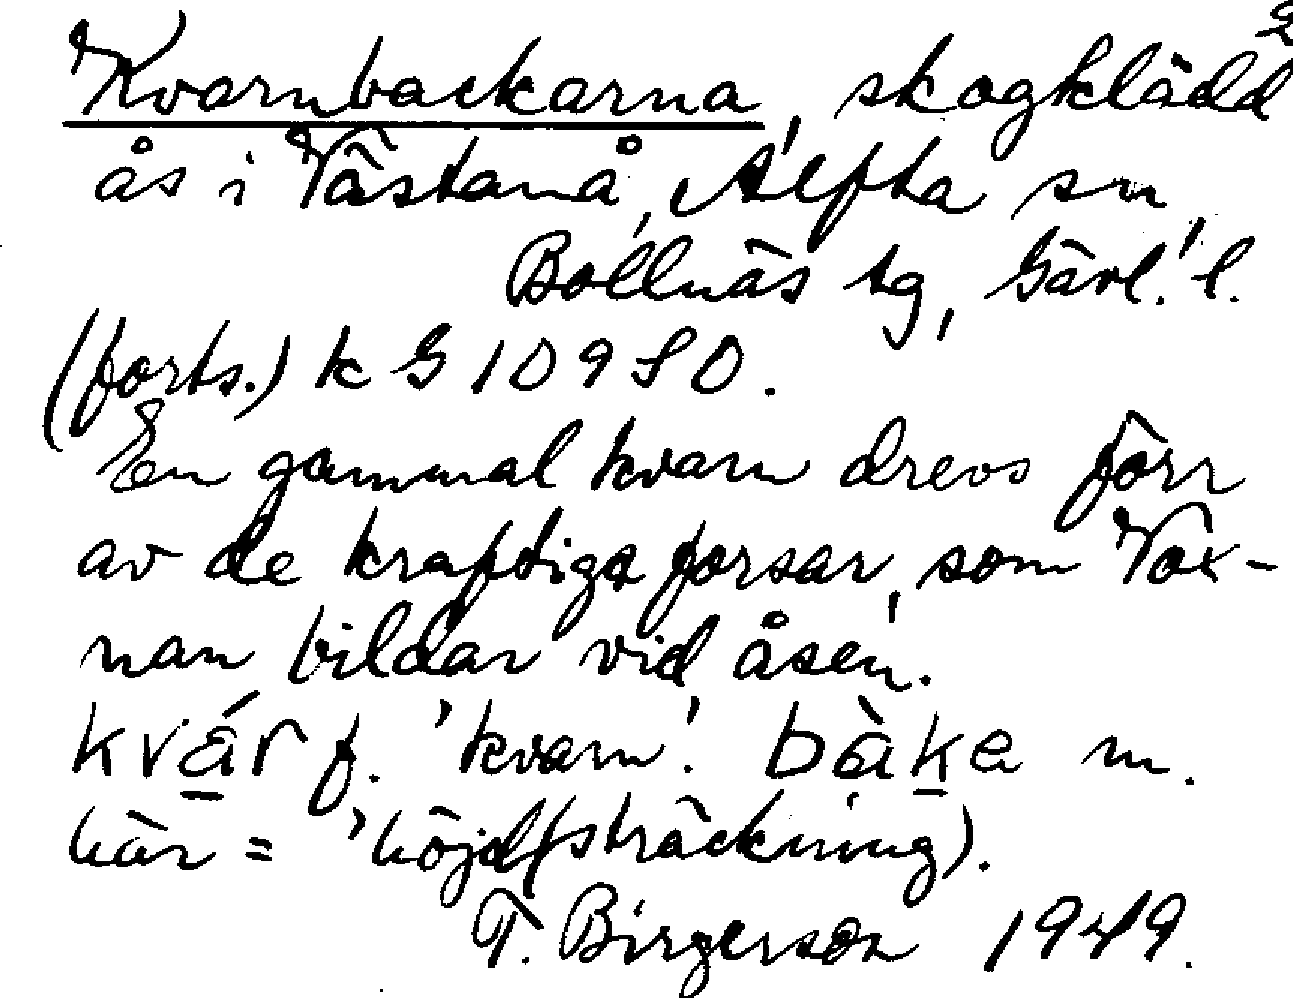 2
Kvarnbackarna, skogklädd
ås i Västanå, Alfta sn,
Bollnäs tg, Gävl. l.
(forts.) k G 10980.
En gammal kvarn drevs förr
av de kraftiga forsar, som Vox-
nan bildar vid åsen.
kvár f. 'kvarn'. bàke m.
här = 'höjd(sträckning).
T. Birgerson 1949.